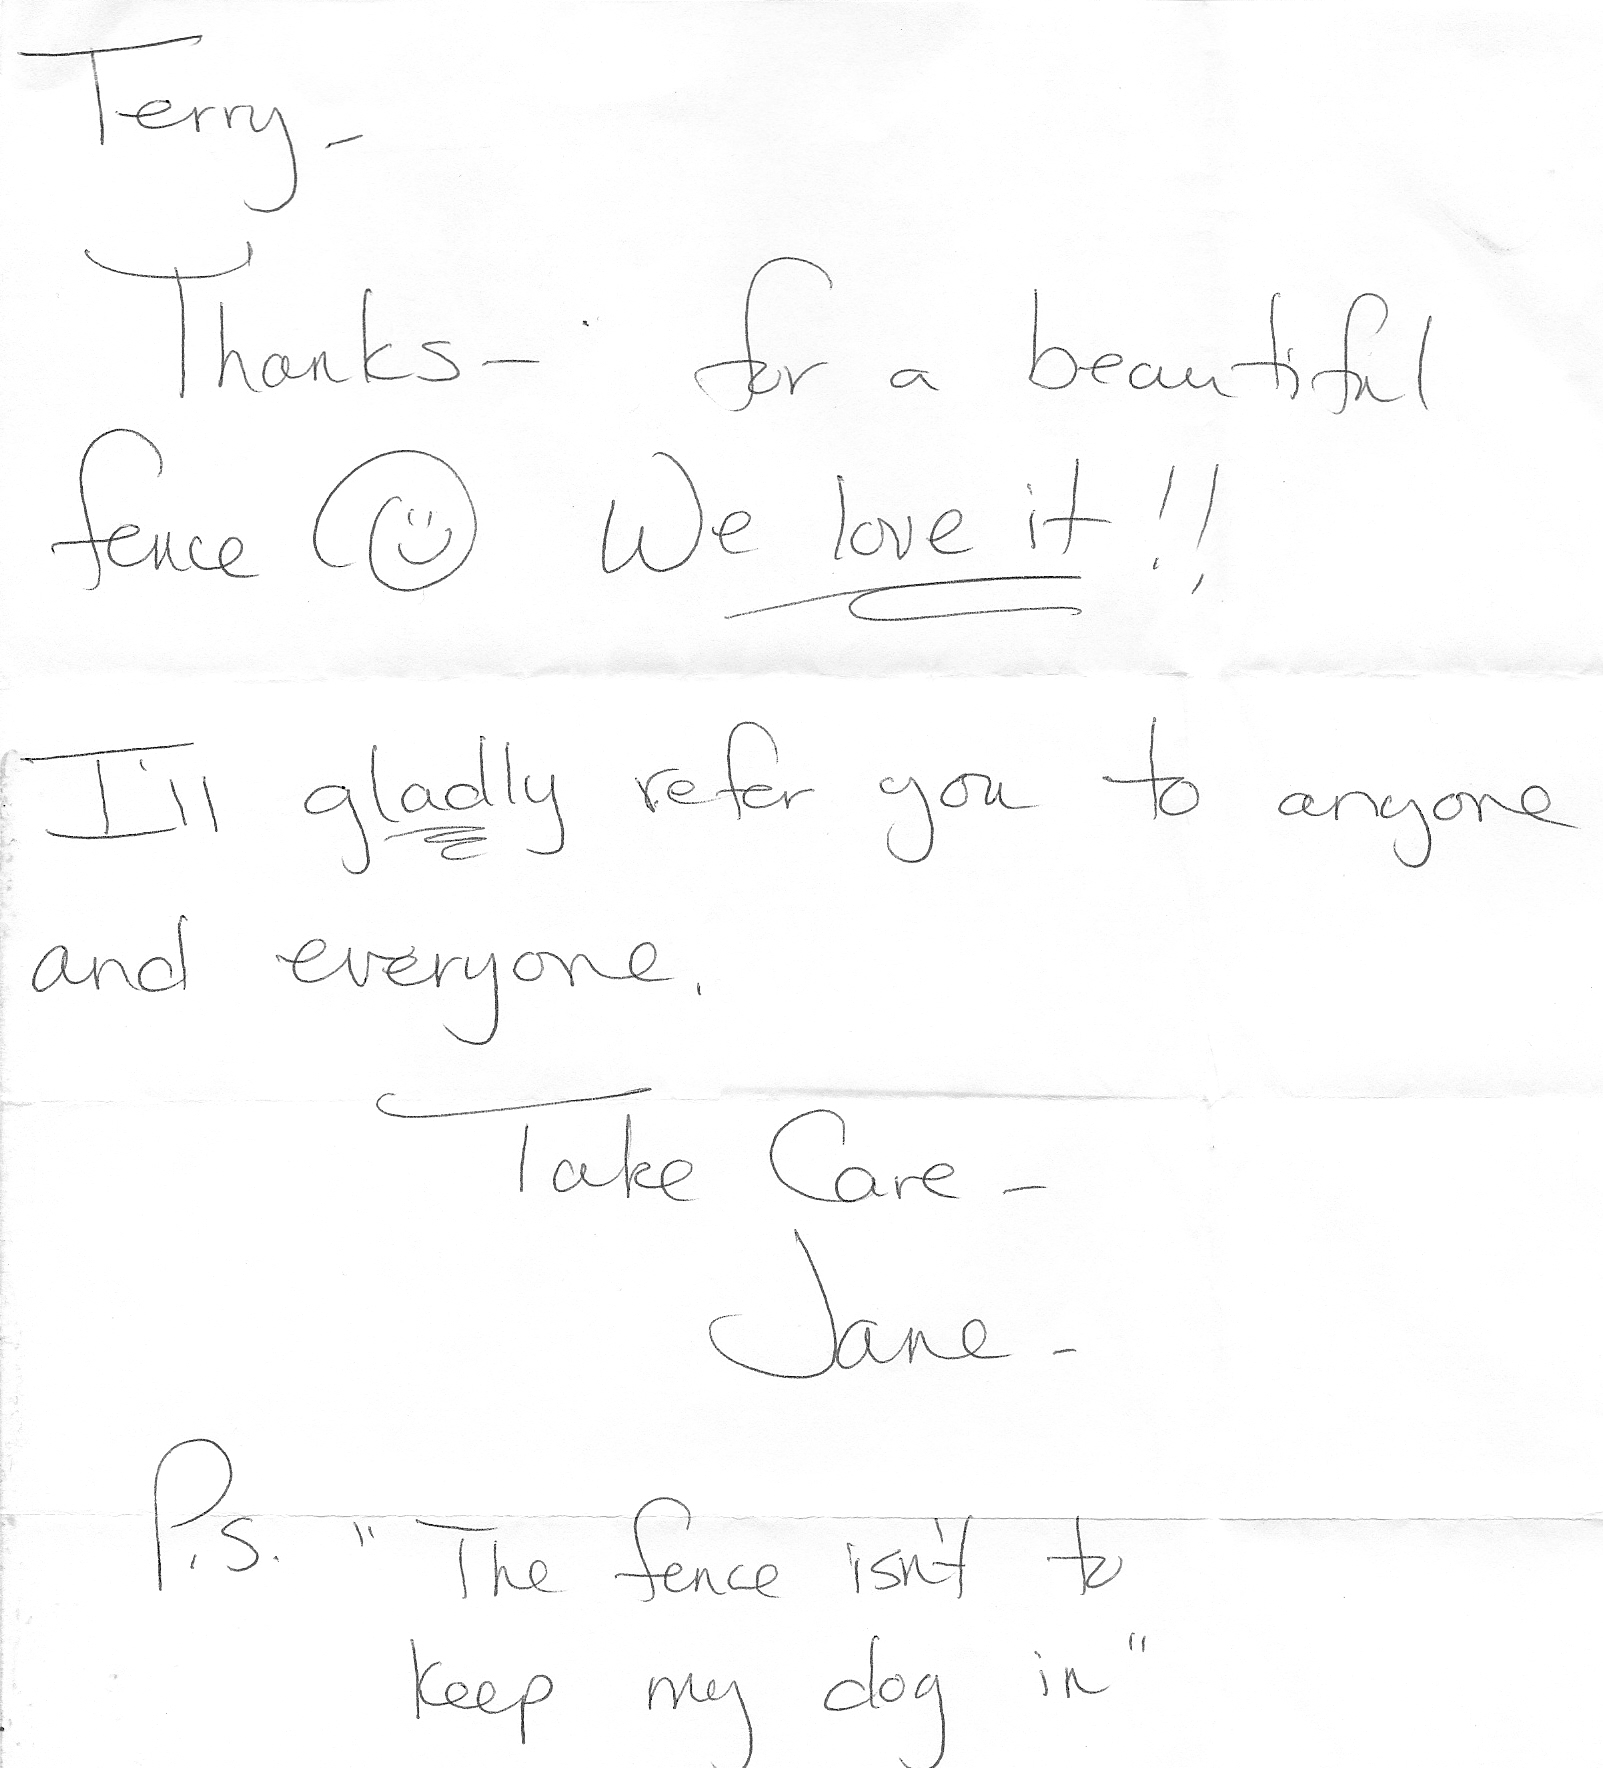 Terry-
Thanks- for a beautiful
fence ☺ We love it!!
I'll gladly refer you to anyone
and everyone.
Take Care-
Jane-
P.S. "The fence isn't to
keep my dog in"